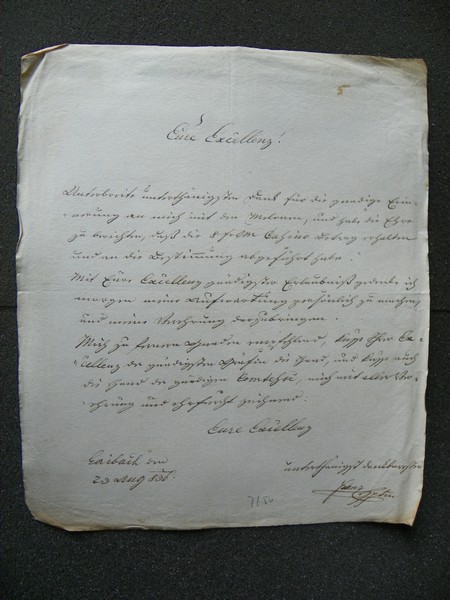 5
Eure Excellenz!
Unterbreite unterthänigsten Dank für die gnädige Erin-
nerung an mich mit den Melonen, und habe die Ehre
zu berichten, daß die Casino Betrag erhalten
und an die Bestimmung abgeführt habe.
Mit Eure Excellenz gnädigster Erlaubniß gedenke ich
morgen meine Aufwartung persönlich zu machen,
und meine Verehrung darzubringen.
Mich zu fernern Gnaden empfehlend, küsse Ihrer Ex-
cellenz der gnädigsten Gräfin die Hand, und küsse auch
die Hand der gnädigen Comtesse, mich mit aller Ver-
ehrung und Ehrfurcht zeichnend.
Eure Excellenz
Laibach den
23 Aug
unterthänigst dankbarster
Franz